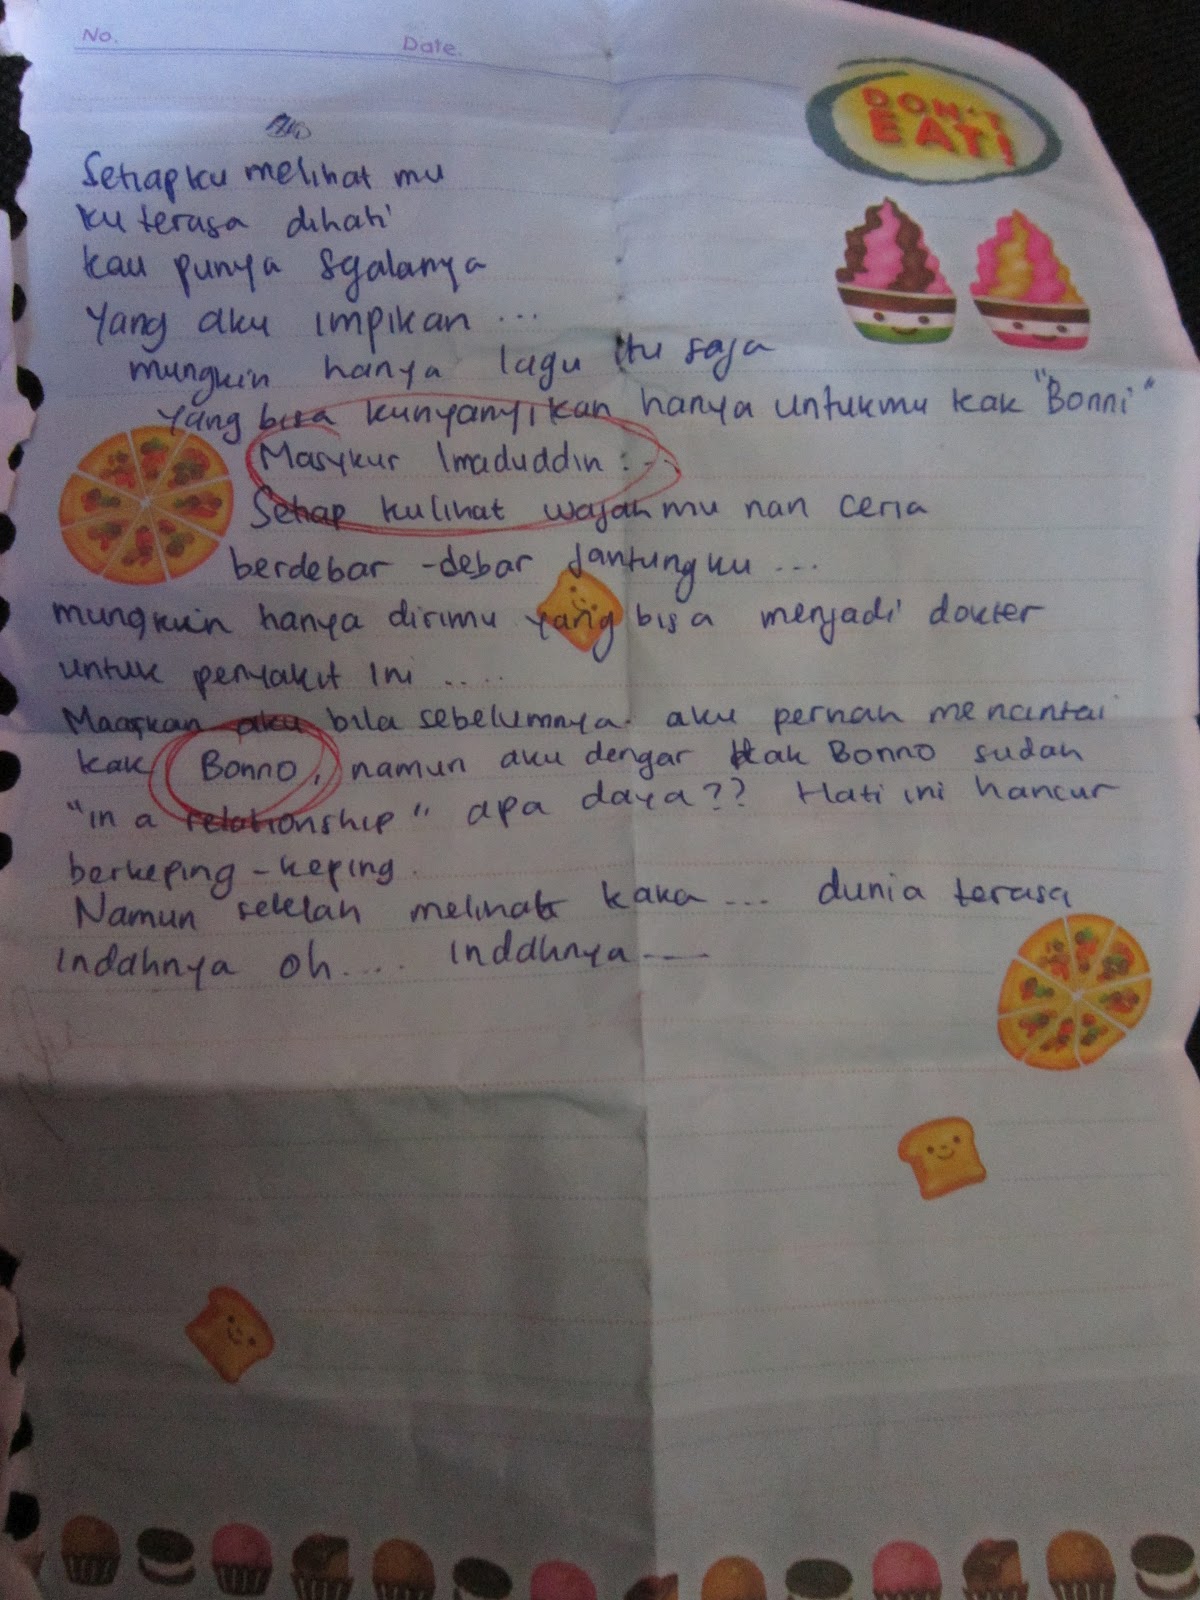 No. Date.
DON'T
EAT!
Setiapku melihat mu
ku terasa dihati
kau punya sgalanya
yang aku impikan ...
mungkin hanya lagu itu saja
yang bisa kunyanyikan hanya untukmu kak "Bonni"
Masykur Imaduddin :--
Setiap kulihat wajahmu nan ceria
berdebar -debar jantungku ...
mungkin hanya dirimu yang bisa menjadi dokter
untuk penyakit ini ....
Maafkan aku bila sebelumnya aku pernah mencintai
kak Bonno, namun aku dengar kak Bonno sudah
"in a relationship" apa daya?? Hati ini hancur
berkeping -keping.
Namun setelah melihat kaka ... dunia terasa
indahnya oh .... inddhnya ----